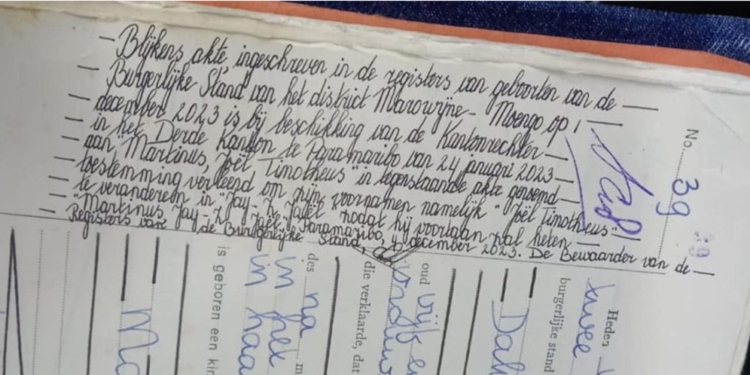 - Blijkens akte ingeschreven in de registers van geboorten van de -
- Burgerlijke Stand van het district Marowijne - Moengo op 1 -
- december 2023 is bij beschikking van de Kantonrechter -
- in het Derde Kanton te Paramaribo van 24 januari 2023 -
- aan "Martinus, Joël Timotheus" in tegenstaande akte genoemd -
- toestemming verleend om zijne voornamen namelijk "Joël Timotheus" -
- te veranderen in "Jay- zodat hij voortaan zal heten -
- "Martinus, Jay- Paramaribo, december 2023. De Bewaarder van de -
Registers van de Burgerlijke Stand,
No. 39
39
Heden
twee
burgerlijke stand
Dal
oud vijf en
die verklaarde, dat
des na
in het
in haa
is geboren een kin
Ma